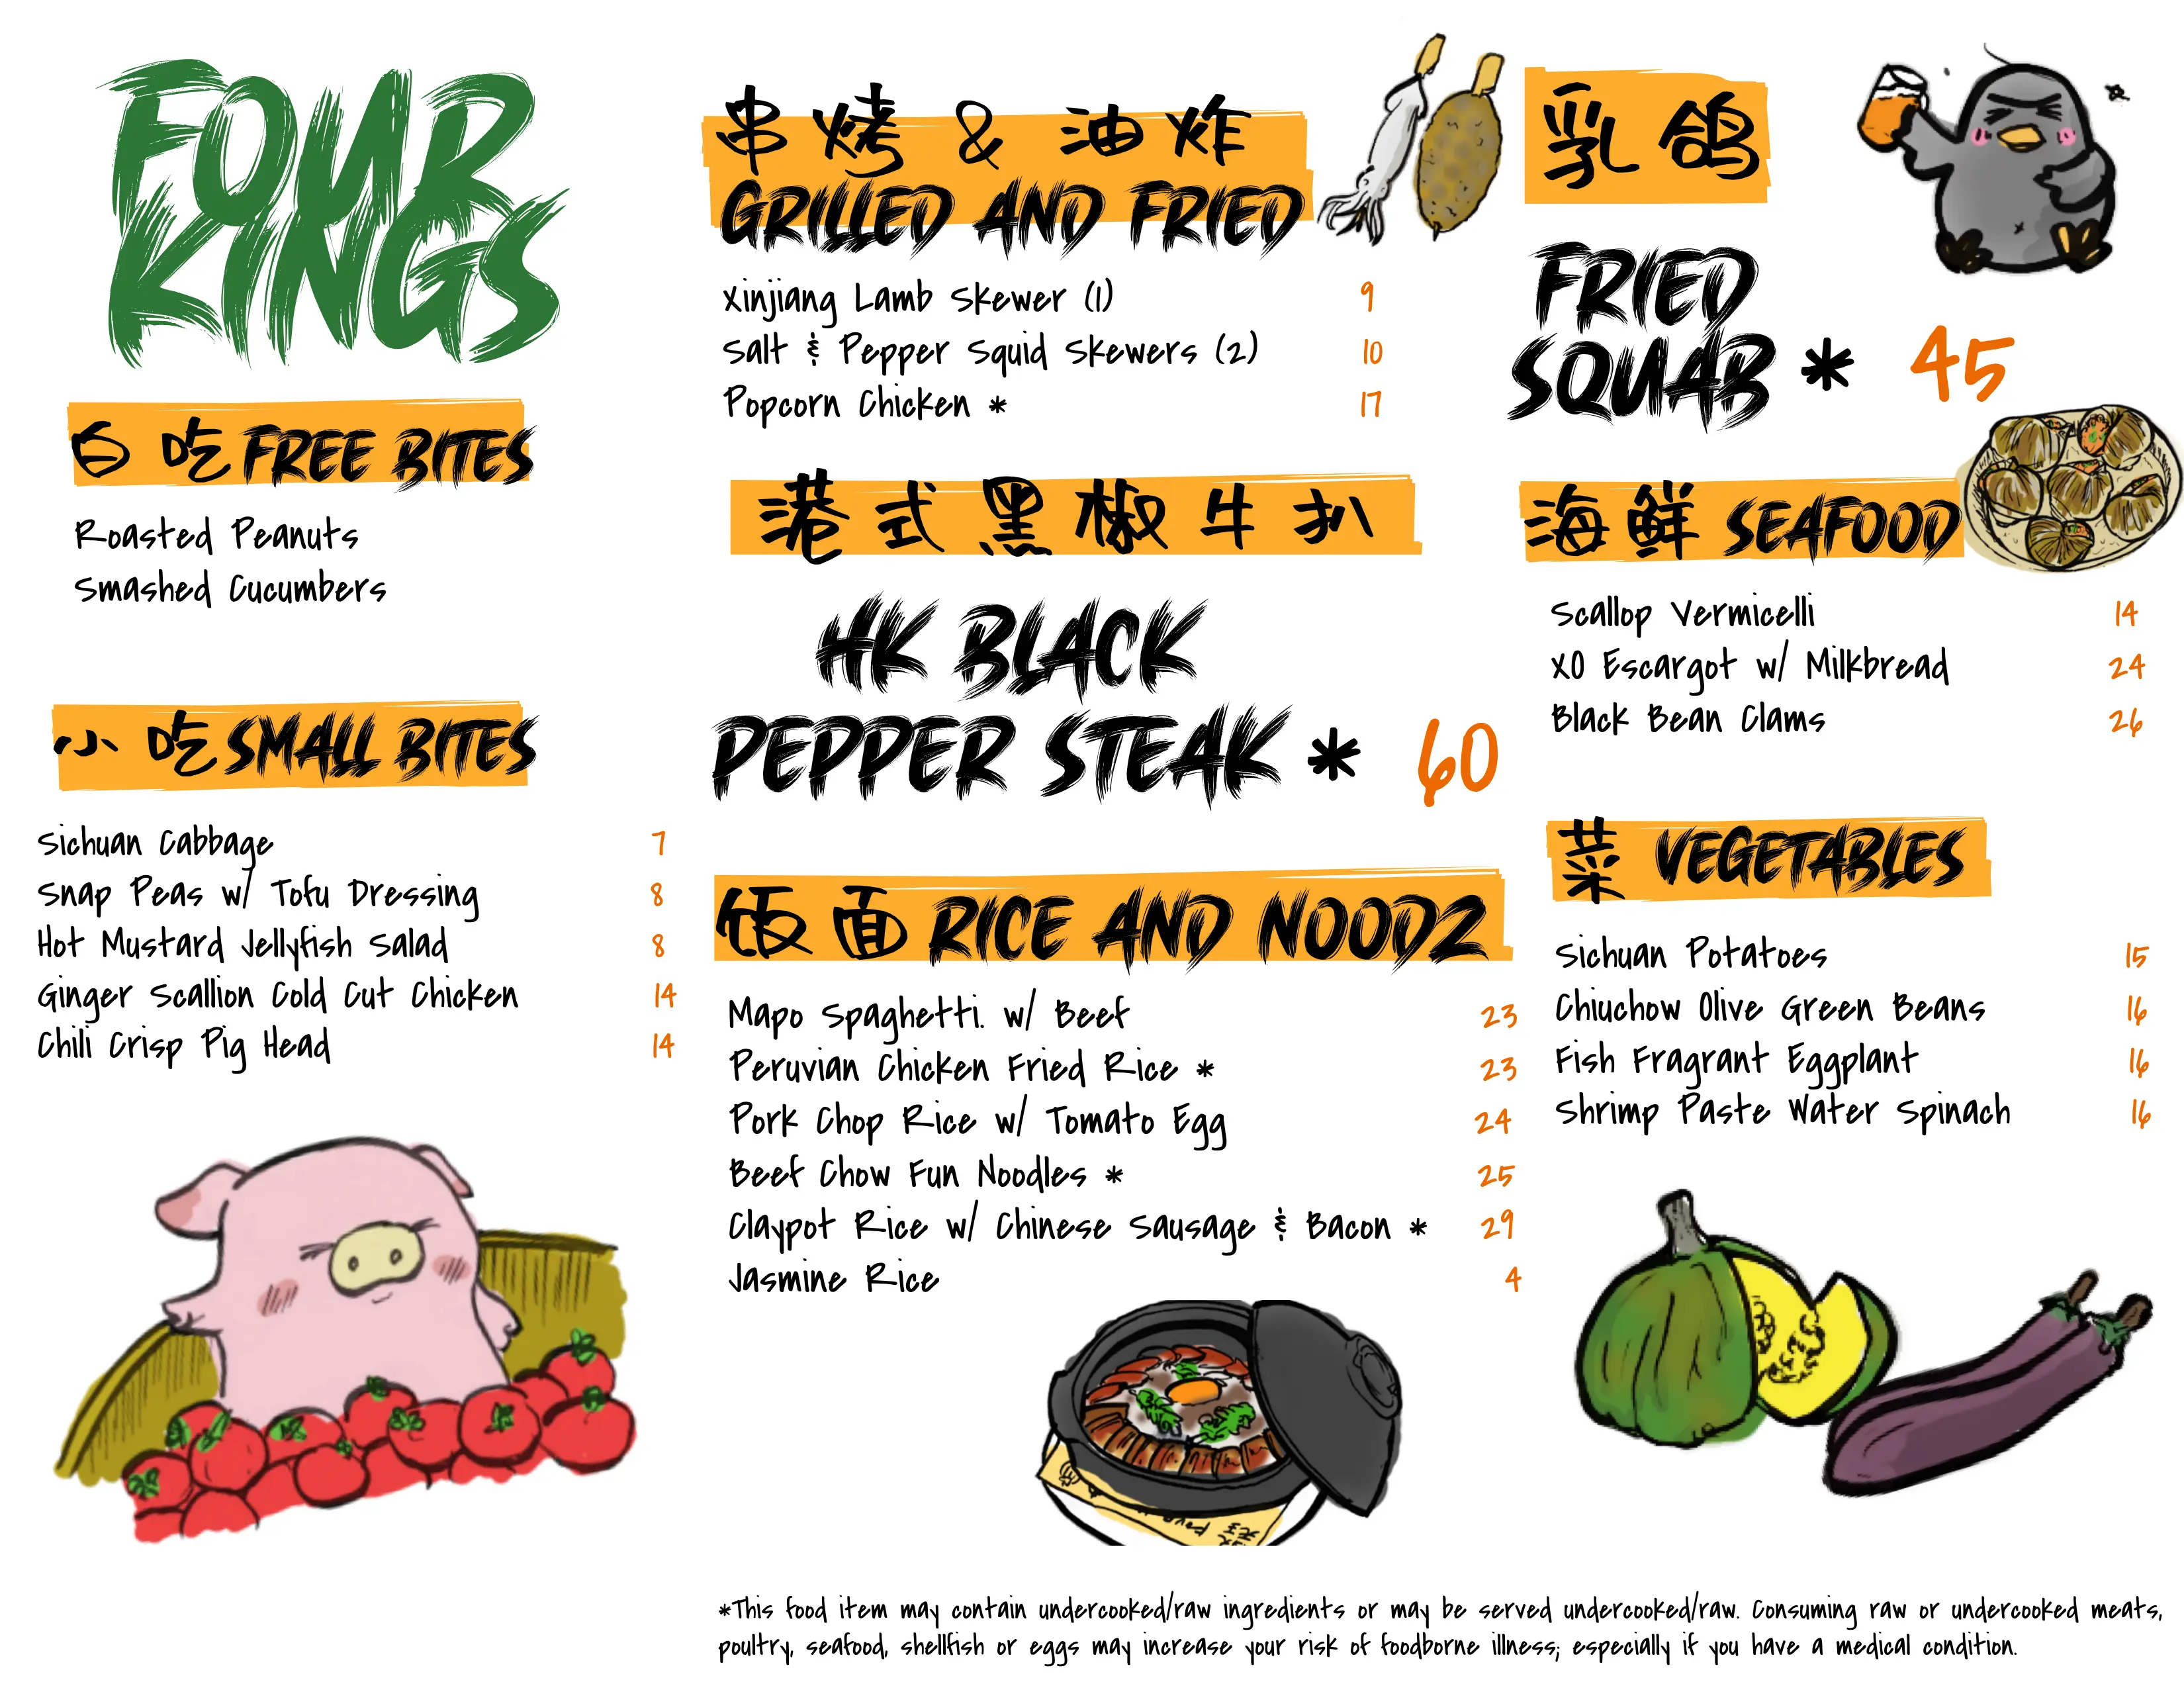 FOUR
KINGS
白 吃 FREE BITES
Roasted Peanuts
Smashed Cucumbers
小 吃 SMALL BITES
Sichuan Cabbage 7
Snap Peas w/ Tofu Dressing 8
Hot Mustard Jellyfish Salad 8
Ginger Scallion Cold Cut Chicken 14
Chili Crisp Pig Head 14
串 烤 & 油 炸
GRILLED AND FRIED
Xinjiang Lamb Skewer (1) 9
Salt & Pepper Squid Skewers (2) 10
Popcorn Chicken * 17
港 式 黑 椒 牛 扒
HK BLACK
PEPPER STEAK * 60
饭 面 RICE AND NOODZ
Mapo Spaghetti. w/ Beef 23
Peruvian Chicken Fried Rice * 23
Pork Chop Rice w/ Tomato Egg 24
Beef Chow Fun Noodles * 25
Claypot Rice w/ Chinese Sausage & Bacon * 29
Jasmine Rice 4
乳 鸽
FRIED
SQUAB * 45
海 鲜 SEAFOOD
Scallop Vermicelli 14
XO Escargot w/ Milkbread 24
Black Bean Clams 26
菜 VEGETABLES
Sichuan Potatoes 15
Chiuchow Olive Green Beans 16
Fish Fragrant Eggplant 16
Shrimp Paste Water Spinach 16
*This food item may contain undercooked/raw ingredients or may be served undercooked/raw. Consuming raw or undercooked meats,
poultry, seafood, shellfish or eggs may increase your risk of foodborne illness; especially if you have a medical condition.